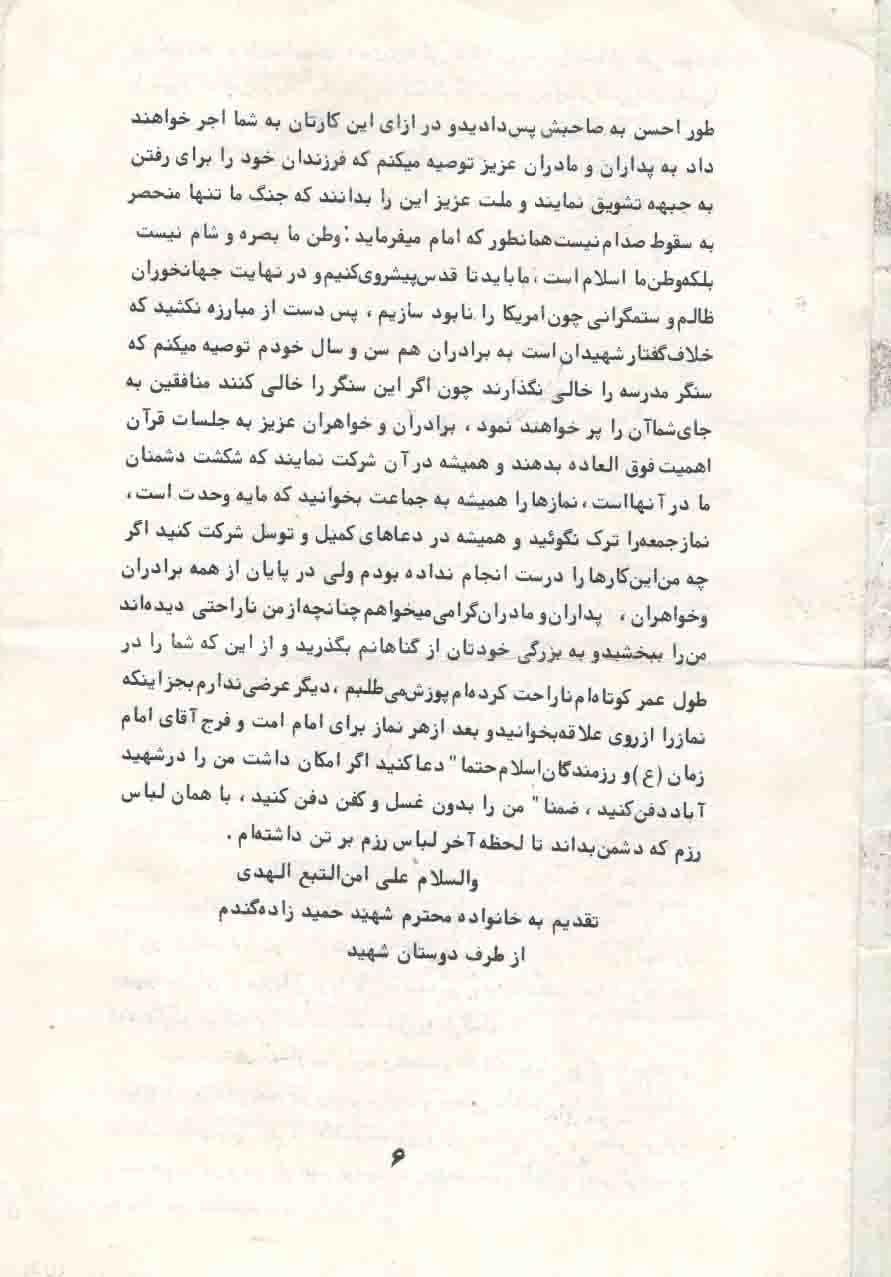 طور احسن به صاحبش پس دادیدو در ازای این کارتان به شما اجر خواهند
داد به پداران و مادران عزیز توصیه میکنم که فرزندان خود را برای رفتن
به جبهه تشویق نمایند و ملت عزیز این را بدانند که جنگ ما تنها منحصر
به سقوط صدام نیست همانطور که امام میفرماید : وطن ما بصره و شام نیست
بلکه وطن ما اسلام است ، ما باید تا قدس پیشروی کنیم و در نهایت جهانخوران
ظالم و ستمگرانی چون امریکا را نابود سازیم ، پس دست از مبارزه نکشید که
خلاف گفتار شهیدان است به برادران هم سن و سال خودم توصیه میکنم که
سنگر مدرسه را خالی نگذارند چون اگر این سنگر را خالی کنند منافقین به
جای شما آن را پر خواهند نمود ، برادران و خواهران عزیز به جلسات قرآن
اهمیت فوق العاده بدهند و همیشه در آن شرکت نمایند که شکشت دشمنان
ما در آنهااست ، نمازها را همیشه به جماعت بخوانید که مایه وحدت است ،
نماز جمعه را ترک نگوئید و همیشه در دعاهای کمیل و توسل شرکت کنید اگر
چه من این کارها را درست انجام نداده بودم ولی در پایان از همه برادران
وخواهران ، پداران و مادران گرامی میخواهم چنانچه از من ناراحتی دیده‌اند
من را ببخشیدو به بزرگی خودتان از گناهانم بگذرید و از این که شما را در
طول عمر کوتاه‌ام ناراحت کرده‌ام پوزش می طلبم ، دیگر عرضی ندارم بجز اینکه
نماز را از روی علاقه بخوانیدو بعد از هر نماز برای امام امت و فرج آقای امام
زمان (ع) و رزمندگان اسلام حتما" دعا کنید اگر امکان داشت من را در شهید
آباد دفن کنید ، ضمنا" من را بدون غسل و کفن دفن کنید ، با همان لباس
رزم که دشمن بداند تا لحظه آخر لباس رزم بر تن داشته‌ام .
والسلام علی امن التبع الهدی
تقدیم به خانواده محترم شهید حمید زاده گندم
از طرف دوستان شهید
۶